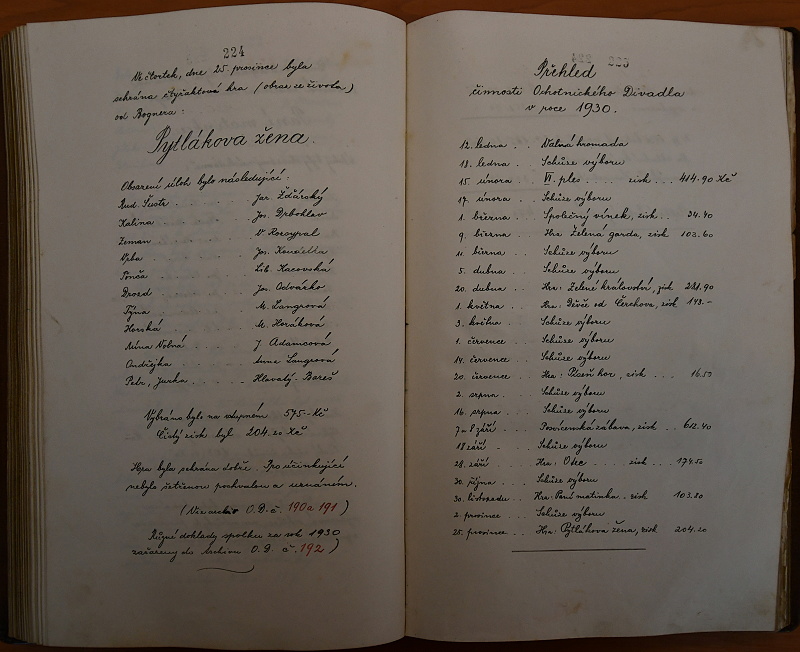 224
Ve čtvrtek, dne 25. prosince byla
sehrána čtyřaktová hra (obraz ze života)
od Bognera:
Pytlákova žena.
Obsazení úloh bylo následující:
Rud. Šustr . . . . Jar. Žďárský
Kalina . . . . Jos. Drbohlav
Zeman . . . . V. Rozsypal
Vrba . . . . Jos.
Tonča . . . . Lib. Kacovská
Drozd . . . . Jos. Odvárko
Týna . . . . M. Langrová
Horská . . . . M. Horáková
Nina Volná . . . . J. Adamcová
Ondřejka . . . . Anna Langrová
Petr, Jurka . . . . Hlavatý - Bareš
Vybráno bylo na vstupném 575.- Kč
Čistý zisk byl 204.20 Kč
Hra byla sehrána dobře. Pro účinkující
nebylo šetřeno pochvalou a uznáním.
(Viz archiv O.D.č. 190 a 191)
Různé doklady spolku za rok 1930
zařazeny do Archivu O.D. č. 192)
223
Přehled
činnosti Ochotnického Divadla
v roce 1930.
12. ledna . . Valná hromada
13. ledna . . Schůze výboru
15. února . . VI. ples . . . zisk . . . 414.90 Kč
17. února . . Schůze výboru
1. března . . Společný vínek, zisk . . 34.40
9. března . . Hra Zelená garda, zisk 103.60
11. března . . Schůze výboru
5. dubna . . Schůze výboru
20. dubna . . Hra: Zelené království, zisk 281.90
1. května . . Hra: Děvče od Čerchova, zisk 143.-
3. května . . Schůze výboru
1. července . . Schůze výboru
14. července . . Schůze výboru
20. července . . Hra: Píseň hor, zisk . . . 16.50
2. srpna . . Schůze výboru
16. srpna . . Schůze výboru
7 a 8 září . . Posvícenská zábava, zisk . . 612.40
18 září . . Schůze výboru
28. září . . Hra: Otec . . . . zisk . . . 174.50
30. října . . Schůze výboru
30. listopadu . . Hra: Paní matinka. zisk 103.80
2. prosince . . Schůze výboru
25. prosince . . Hra: Pytlákova žena, zisk 204.20